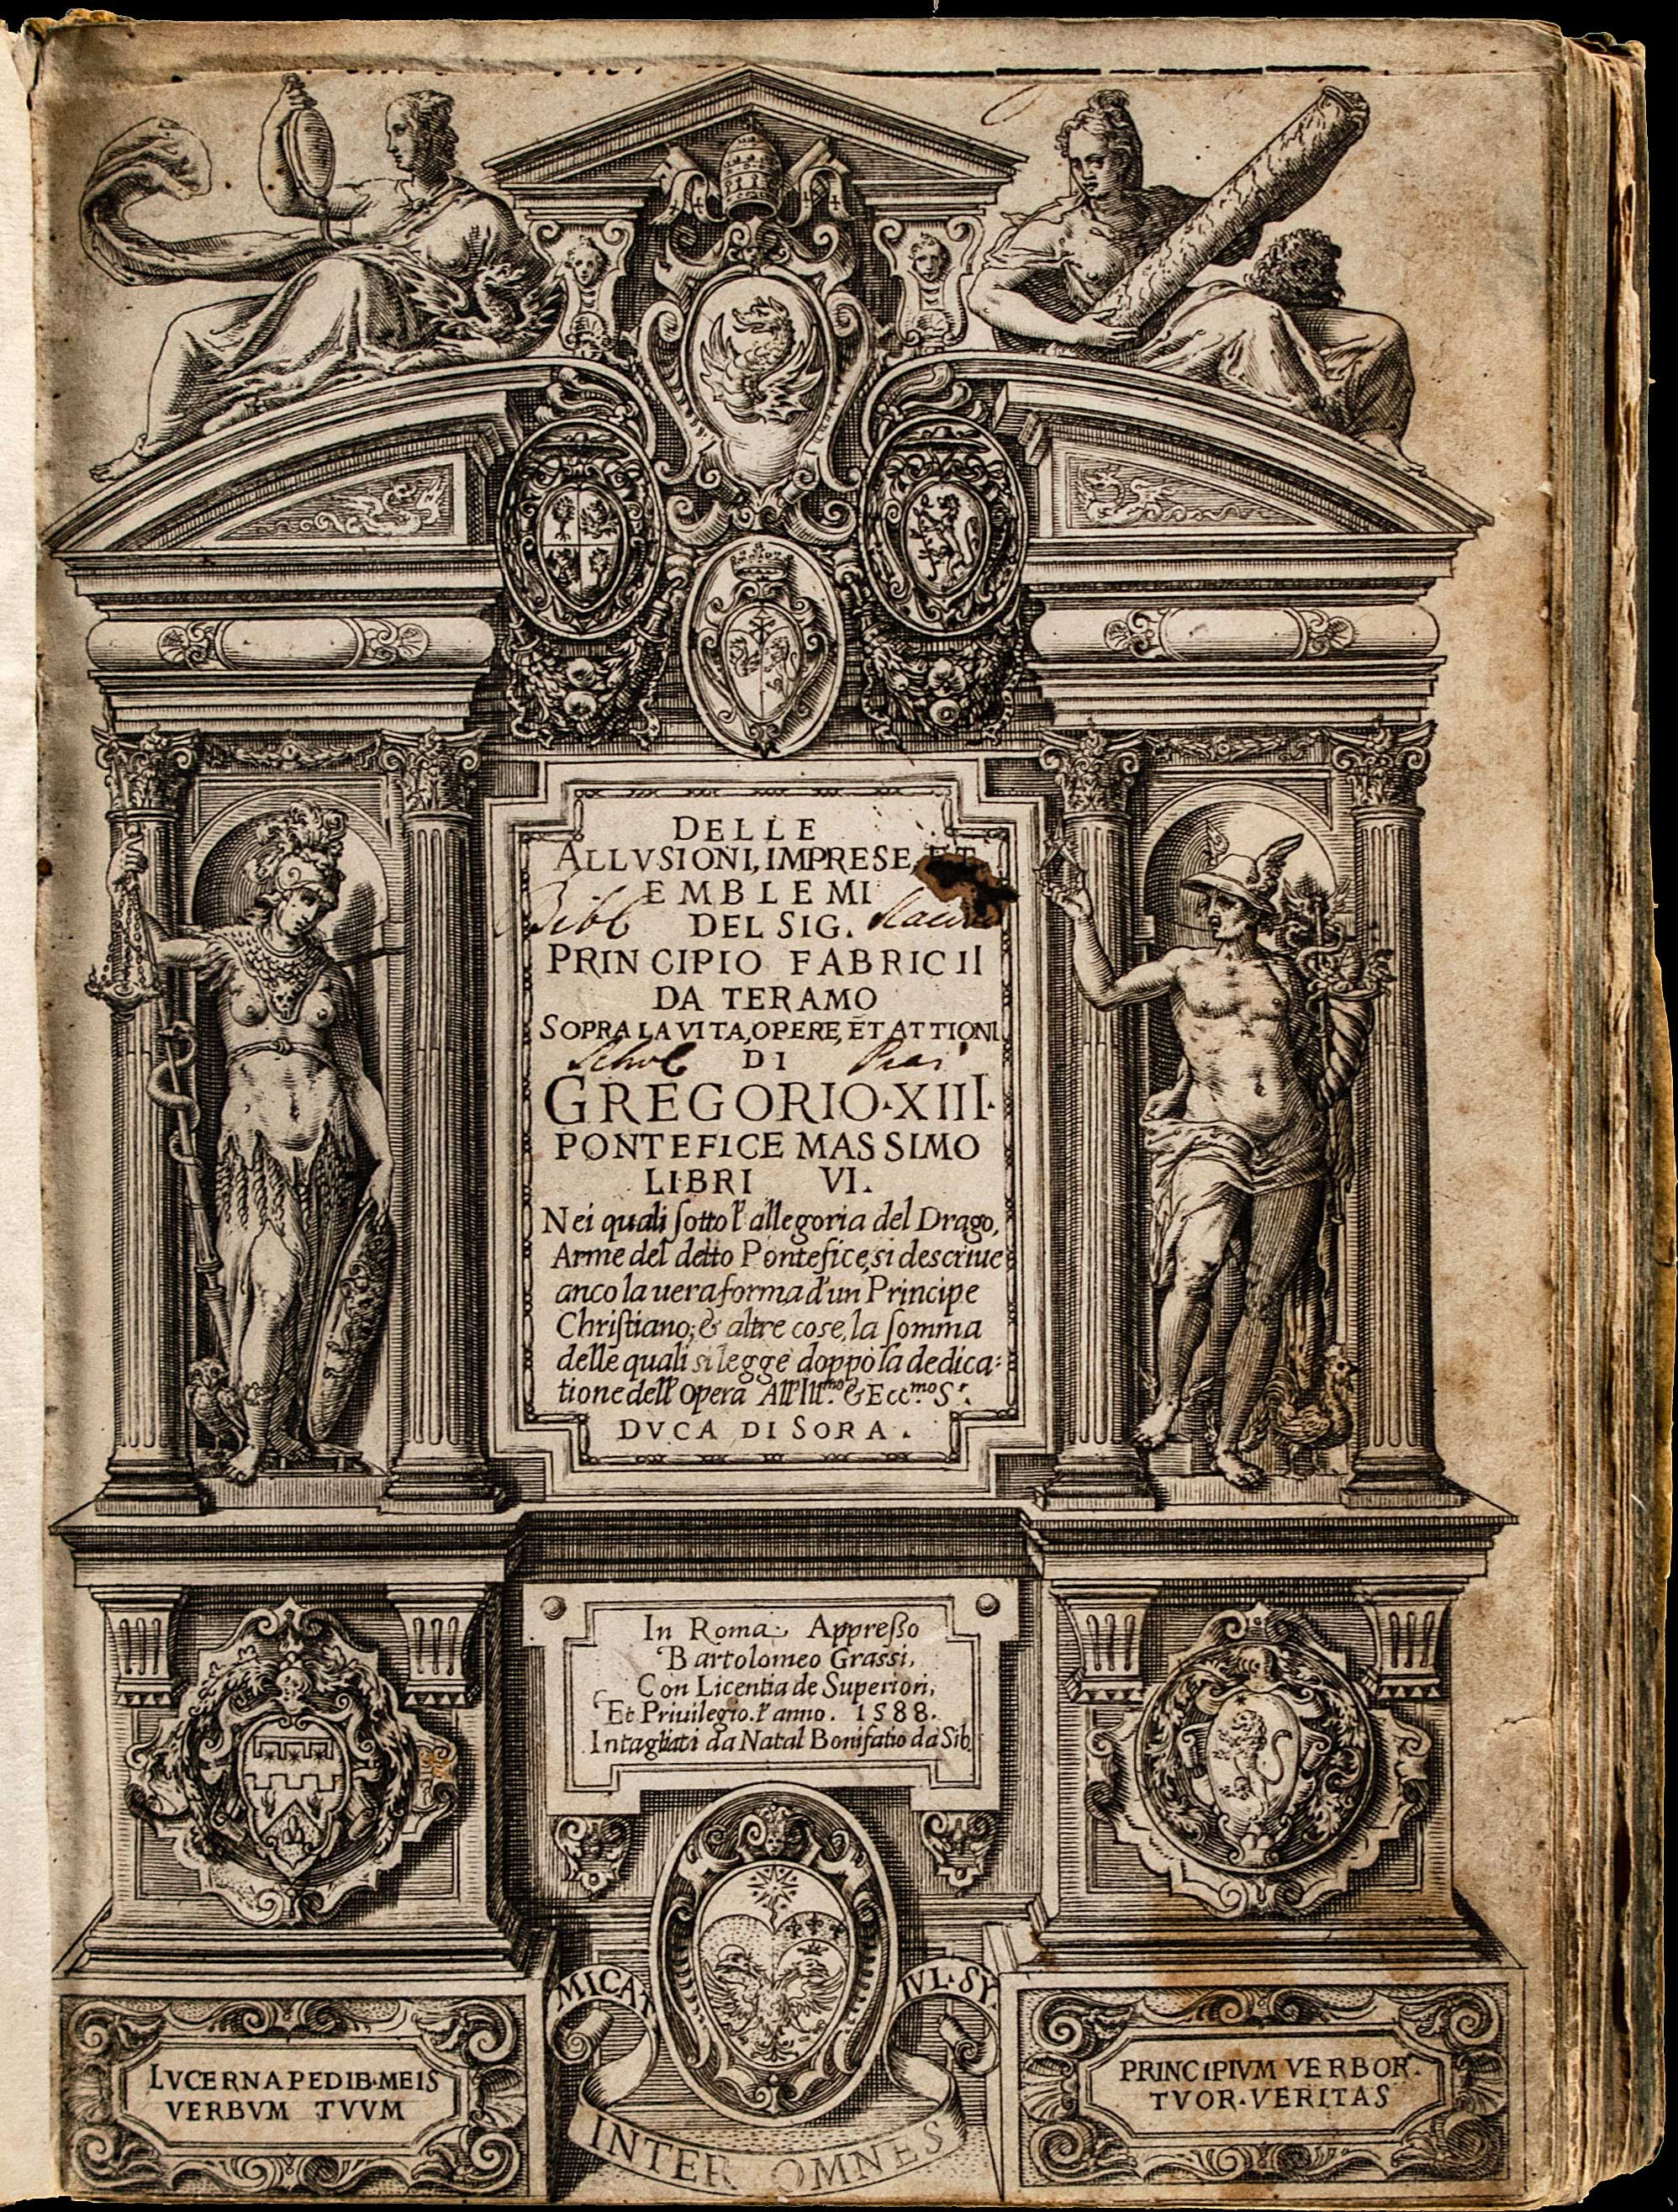 DELLE
ALLVSIONI, IMPRESE, ET
EMBLEMI
Bibl
DEL SIG.
PRINCIPIO FABRICII
DA TERAMO
SOPRA LA VITA, OPERE, ET ATTIONI
DI
GREGORIO·XIII·
PONTEFICE MASSIMO
LIBRI VI.
Nei quali ſotto l'allegoria del Drago,
Arme del detto Pontefice, si descriue
anco la uera forma d'un Principe
Chriſtiano; & altre cose, la ſomma
delle quali si legge doppo la dedica:
tione dell'Opera All'Ill.mo & Ecc.mo S.r
DVCA DI SORA.
In Roma. Appreſſo
Bartolomeo Grassi,
Con Licentia de Superiori,
Et Priuilegio. l'anno. 1588.
Intagliati da Natal Bonifatio da Sib.
MICAT
IVL·SY.
INTER OMNES
LVCERNA PEDIB·MEIS
VERBVM TVVM
PRINCIPIVM VERBOR·
TVOR·VERITAS